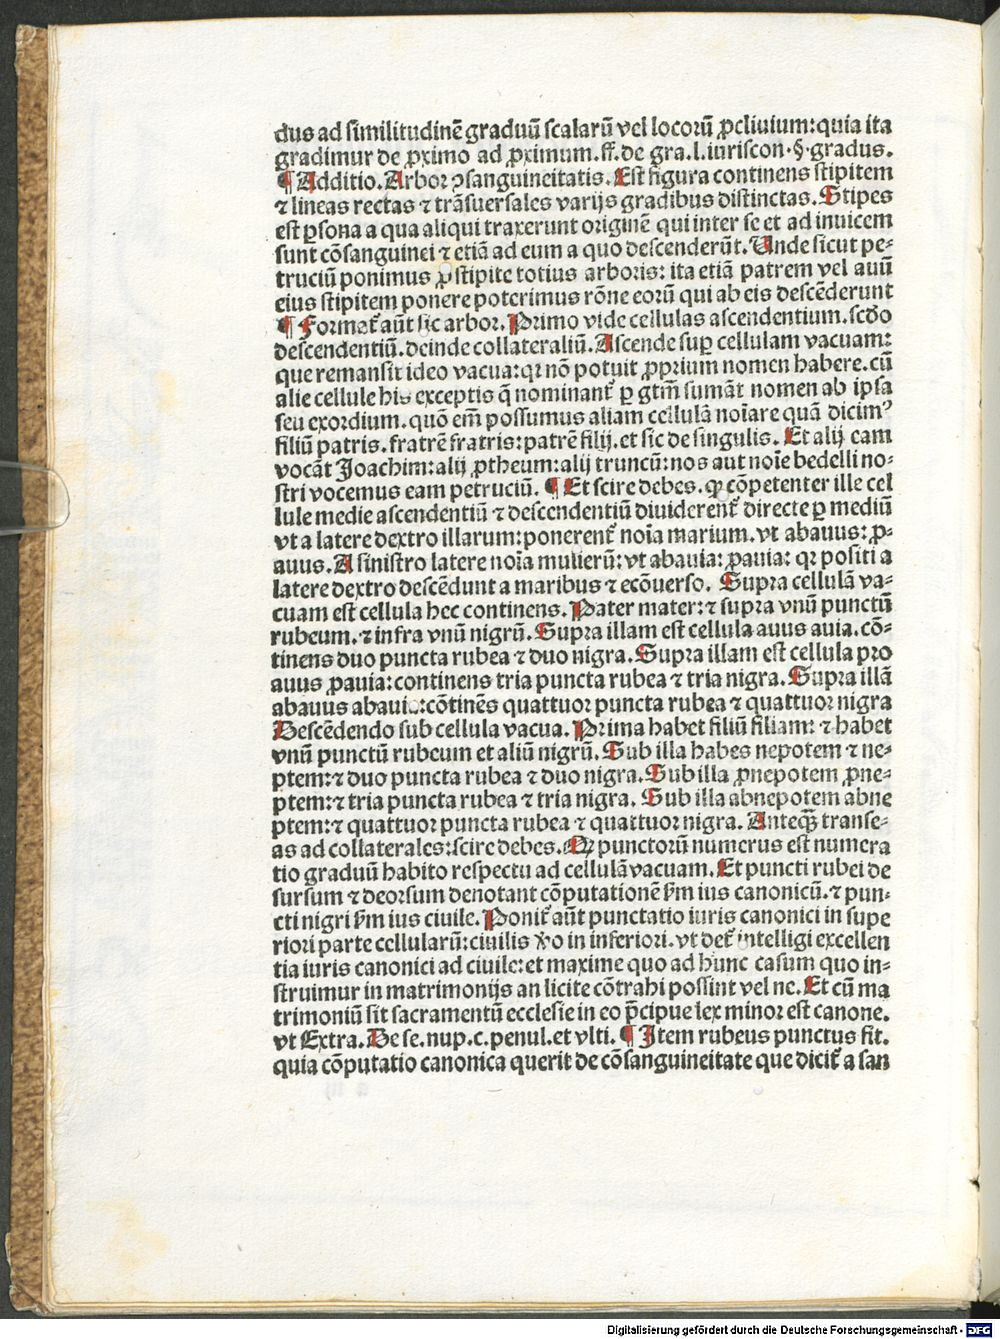 dus ad similitudinē graduū scalarū vel locorū ꝓcliuium: quia ita
gradimur de ꝓximo ad ꝓximum. ff. de gra. l. iuriscon. §. gradus.
¶ Additio. Arbor ꝯsanguineitatis. Est figura continens stipitem
⁊ lineas rectas ⁊ trāsuersales varijs gradibus distinctas. Stipes
est ꝑsona a qua aliqui traxerunt originē qui inter se et ad inuicem
sunt cōsanguinei ⁊ etiā ad eum a quo descenderūt. Unde sicut pe-
truciū ponimus ꝓ stipite totius arboris: ita etiā patrem vel auū
eius stipitem ponere poterimus rōne eorū qui ab eis descēderunt
¶ Format᷑ aūt sic arbor. Primo vide cellulas ascendentium. scd̄o
descendentiū. deinde collateraliū. Ascende suꝑ cellulam vacuam:
que remansit ideo vacua: qꝛ nō potuit ꝓprium nomen habere. cū
alie cellule his exceptis q̄ nominant᷑ ꝑ gtm̄ sumāt nomen ab ipsa
seu exordium. quō em̄ possumus aliam cellulā noīare quā dicimꝰ
filiū patris. fratrē fratris: patrē filij. et sic de singulis. Et alij eam
vocāt Joachim: alij ꝓtheum: alij truncū: nos aut noīe bedelli no-
stri vocemus eam petruciū. ¶ Et scire debes. ꝙ cōpetenter ille cel
lule medie ascendentiū ⁊ descendentiū diuiderent᷑ directe ꝑ mediū
vt a latere dextro illarum: ponerent᷑ noīa marium. vt abauus: ꝓ-
auus. A sinistro latere noīa mulierū: vt abauia: ꝓauia: qꝛ positi a
latere dextro descēdunt a maribus ⁊ ecōuerso. Supra cellulā va-
cuam est cellula hec continens. Pater mater: ⁊ supra vnū punctū
rubeum. ⁊ infra vnū nigrū. Supra illam est cellula auus auia. cō-
tinens duo puncta rubea ⁊ duo nigra. Supra illam est cellula pro
auus ꝓauia: continens tria puncta rubea ⁊ tria nigra. Supra illā
abauus abauia: cōtinēs quattuor puncta rubea ⁊ quattuor nigra
Descēdendo sub cellula vacua. Prima habet filiū filiam: ⁊ habet
vnū punctū rubeum et aliū nigrū. Sub illa habes nepotem ⁊ ne-
ptem: ⁊ duo puncta rubea ⁊ duo nigra. Sub illa ꝓnepotem ꝓne-
ptem: ⁊ tria puncta rubea ⁊ tria nigra. Sub illa abnepotem abne
ptem: ⁊ quattuor puncta rubea ⁊ quattuor nigra. Anteq̄ꝫ transe-
as ad collaterales: scire debes. Ꝙ punctorū numerus est numera
tio graduū habito respectu ad cellulā vacuam. Et puncti rubei de
sursum ⁊ deorsum denotant cōputationē ẜm ius canonicū. ⁊ pun-
cti nigri ẜm ius ciuile. Ponit᷑ aūt punctatio iuris canonici in supe
riori parte cellularū: ciuilis ꝟo in inferiori. vt det᷑ intelligi excellen
tia iuris canonici ad ciuile: et maxime quo ad hunc casum quo in-
struimur in matrimonijs an licite cōtrahi possint vel ne. Et cū ma
trimoniū sit sacramentū ecclesie in eo p̄cipue lex minor est canone.
vt Extra. De se. nup. c. penul. et vlti. ¶ Item rubeus punctus fit.
quia cōputatio canonica querit de cōsanguineitate que dicit᷑ a san
Digitalisierung gefördert durch die Deutsche Forschungsgemeinschaft - DFG